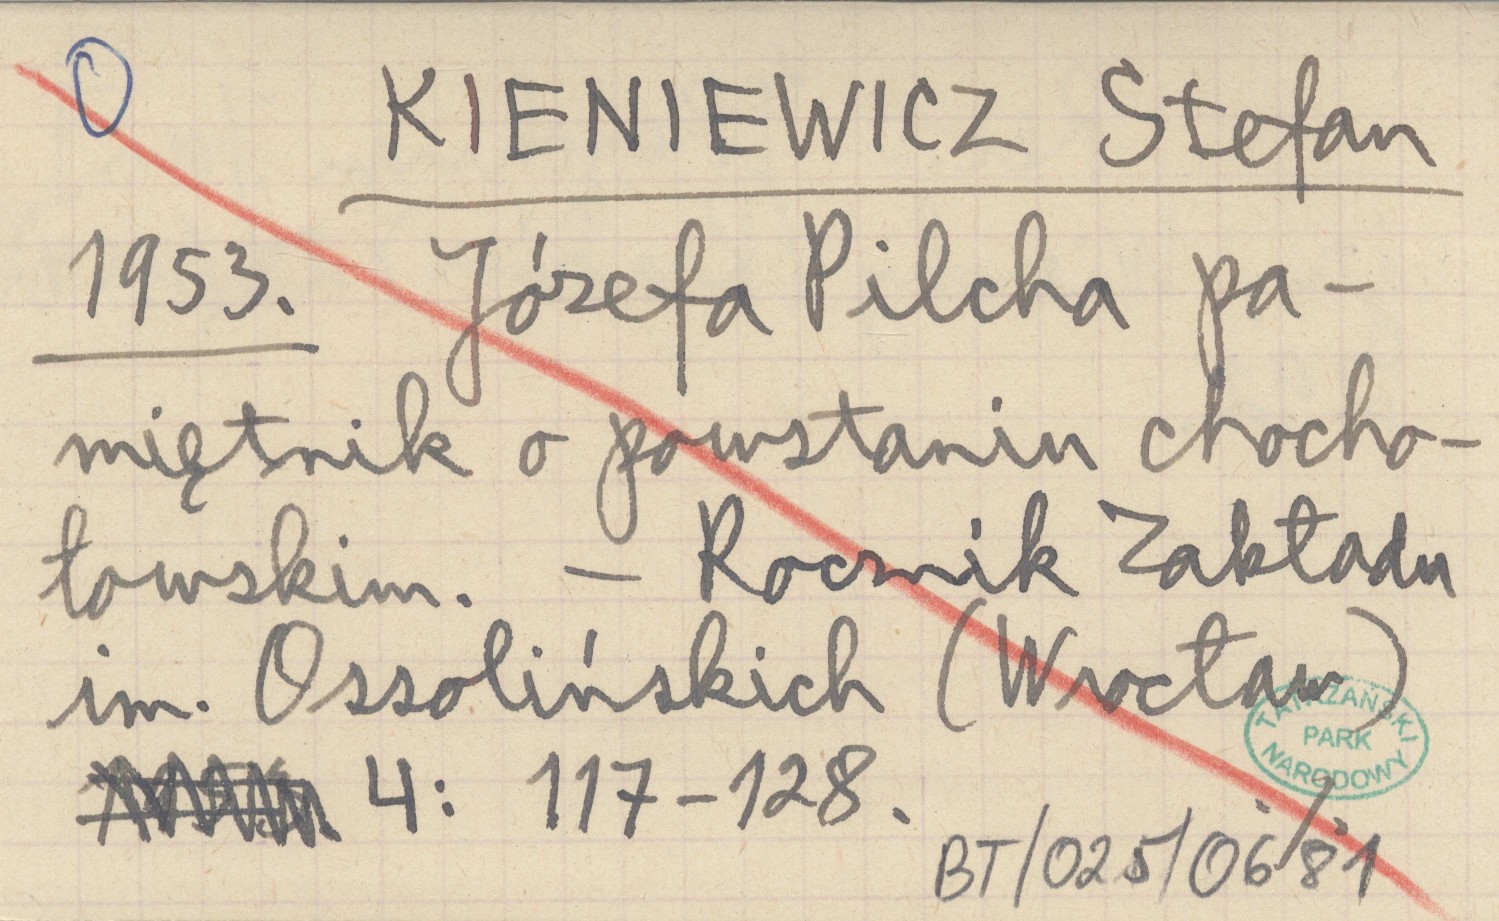 KIENIEWICZ Stefan
1953. Józefa Pilcha pa-
miętnik o powstaniu chocho-
łowskim. — Rocznik Zakładu
im. Ossolińskich (Wrocław)
4: 117-128.
TATRZAŃSKI
PARK
NARODOWY
BT/025/06/81